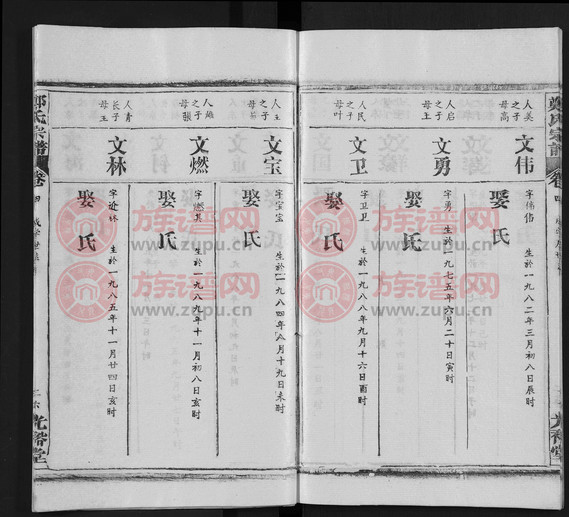 鄭氏宗譜
卷四
光裕堂
人美
之子
母高
文伟
字伟
生於一九八二年三月初八日辰时
娶氏
人启
之子
母王
文勇
字勇
生於一九七五年六月二十日寅时
娶氏
人民
之子
母叶
文卫
字卫卫
生於一九八八年九月十六日酉时
娶氏
人王
之子
文宝
字宝宝
生於一九八四年八月十九日未时
娶氏
人雄
之子
母張
文燃
字燃其
生於一九八九年十一月初八日亥时
娶氏
人青
长子
母王
文林
字迹林
生於一九八五年十一月廿四日亥时
娶氏
鄭氏宗譜
卷四
光裕堂
族谱网
www.zupu.cn
族谱网
www.zupu.cn
族谱网
www.zupu.cn
族谱网
www.zupu.cn